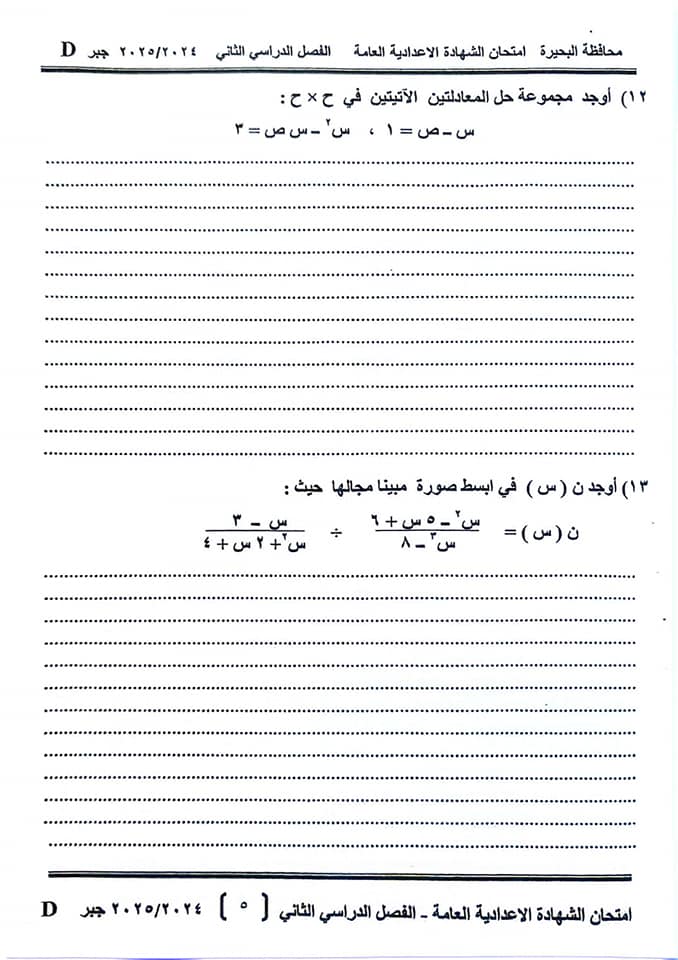 محافظة البحيرة امتحان الشهادة الاعدادية العامة الفصل الدراسي الثاني ٢٠٢٥/٢٠٢٤ جبر D
١٢) أوجد مجموعة حل المعادلتين الآتيتين في ح × ح :
س – ص = ١ ، س² – س ص = ٣
١٣) أوجد ن ( س ) في ابسط صورة مبينا مجالها حيث :
ن ( س ) = (س² – ٥ س + ٦)/(س³ – ٨) ÷ (س – ٣)/(س² + ٢ س + ٤)
امتحان الشهادة الاعدادية العامة – الفصل الدراسي الثاني ( ٥ ) ٢٠٢٥/٢٠٢٤ جبر D